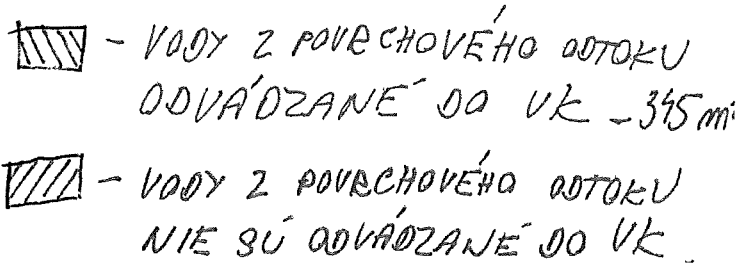 - VODY Z POVRCHOVÉHO ODTOKU
ODVÁDZANÉ DO VK - 345 m²
- VODY Z POVRCHOVÉHO ODTOKU
NIE SÚ ODVÁDZANÉ DO VK.